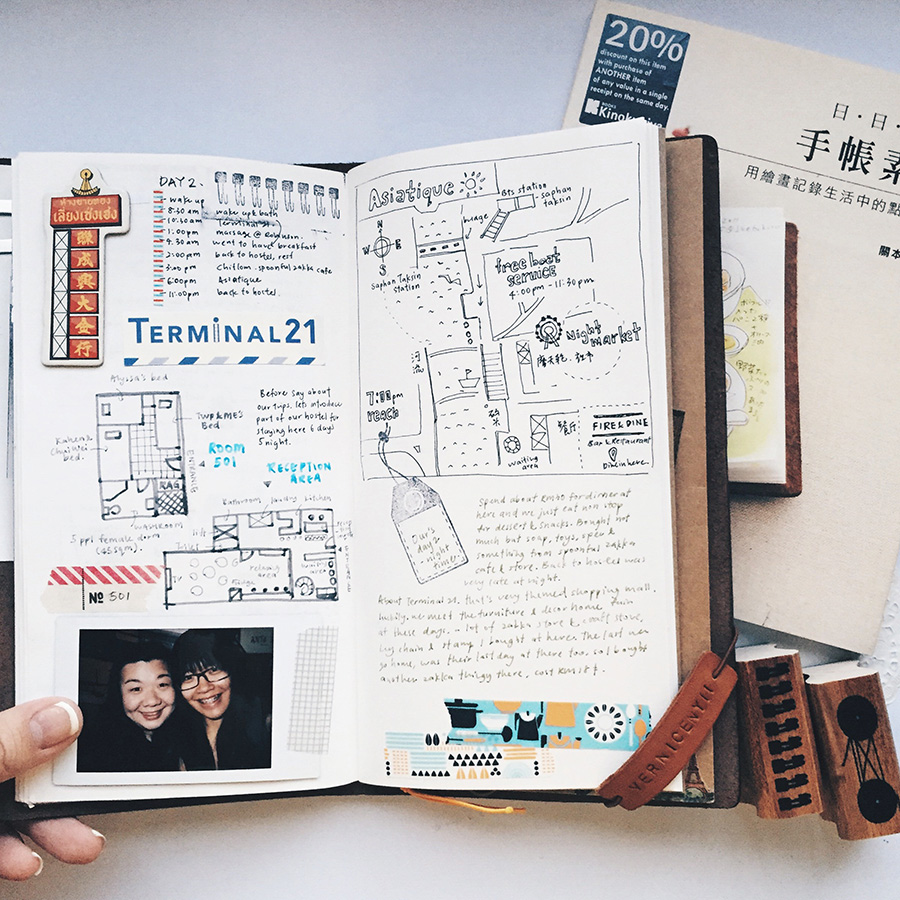 ห้างขายทอง
เลี่ยงเซ่งเฮง
聯成興大金行
DAY 2.
wake up
8:30 am wake up & bath
10:30 am Terminal 21.
1:00pm massage @
9:30am went to have breakfast
2:00pm back to hostel, rest
3:00 pm Chitlom. spoonful zakka cafe
6:00pm Asiatique
11:00pm back to hostel.
TERMINAL21
Alyssa's bed
Before say about
our trips, lets introduce
part of our hostel for
staying here 6 days
5 night.
ME'S
Bed
bed.
ENTRANCE
ROOM
501
RECEPTION
AREA
RAG
WASHROOM
5 ppl female dorm
(45sqm).
Bathroom laundry kitchen
lift
Toilet
relaxing
area
fridge
waiting
area
№ 501
Asiatique
BTS station
saphan
taksin
bridge
N
W E
S
Saphan Taksin
station
free boat
service
4:00 pm - 11:30 pm
Night
market
摩天轮
河流
7:00pm
reach
餐厅
waiting
area
FIRE & DINE
Bar & Restaurant
Dine in here.
Our's
day 2
night
time!
Spend about RM60 for dinner at
here and we just eat non stop
for dessert & snacks. Bought not
much but soap, toys, &
something from spoonful zakka
cafe & store. Back to hostel was
very late at night.
About Terminal 21. that's very themed shopping mall.
we meet the furniture & decor home fair
at these days. a lot of zakka store & craft stove,
key chain & stamp I bought at here. the last we
go home, was their last day at there too. so I bought
another zakka thingy there, cost RM18
VERNICENTII
20%
discount on this item
with purchase of
ANOTHER item
of any value in a single
receipt on the same day.
BOOKS
日・日・
手帳素
用繪畫記錄生活中的點
關本